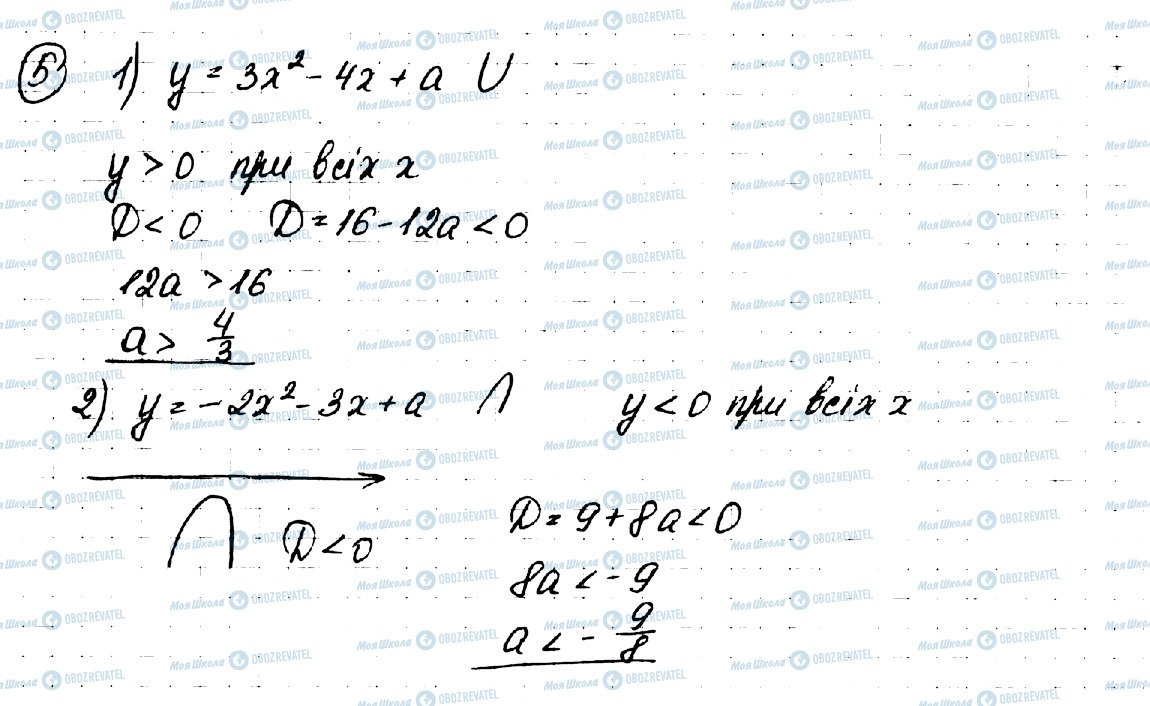 5 1) y = 3x² - 4x + a ∪
y > 0 при всіх x
D < 0 D = 16 - 12a < 0
12a > 16
a > 4/3
2) y = -2x² - 3x + a ∩ y < 0 при всіх x
D < 0
D = 9 + 8a < 0
8a < -9
a < - 9/8
МояШкола OBOZREVATEL